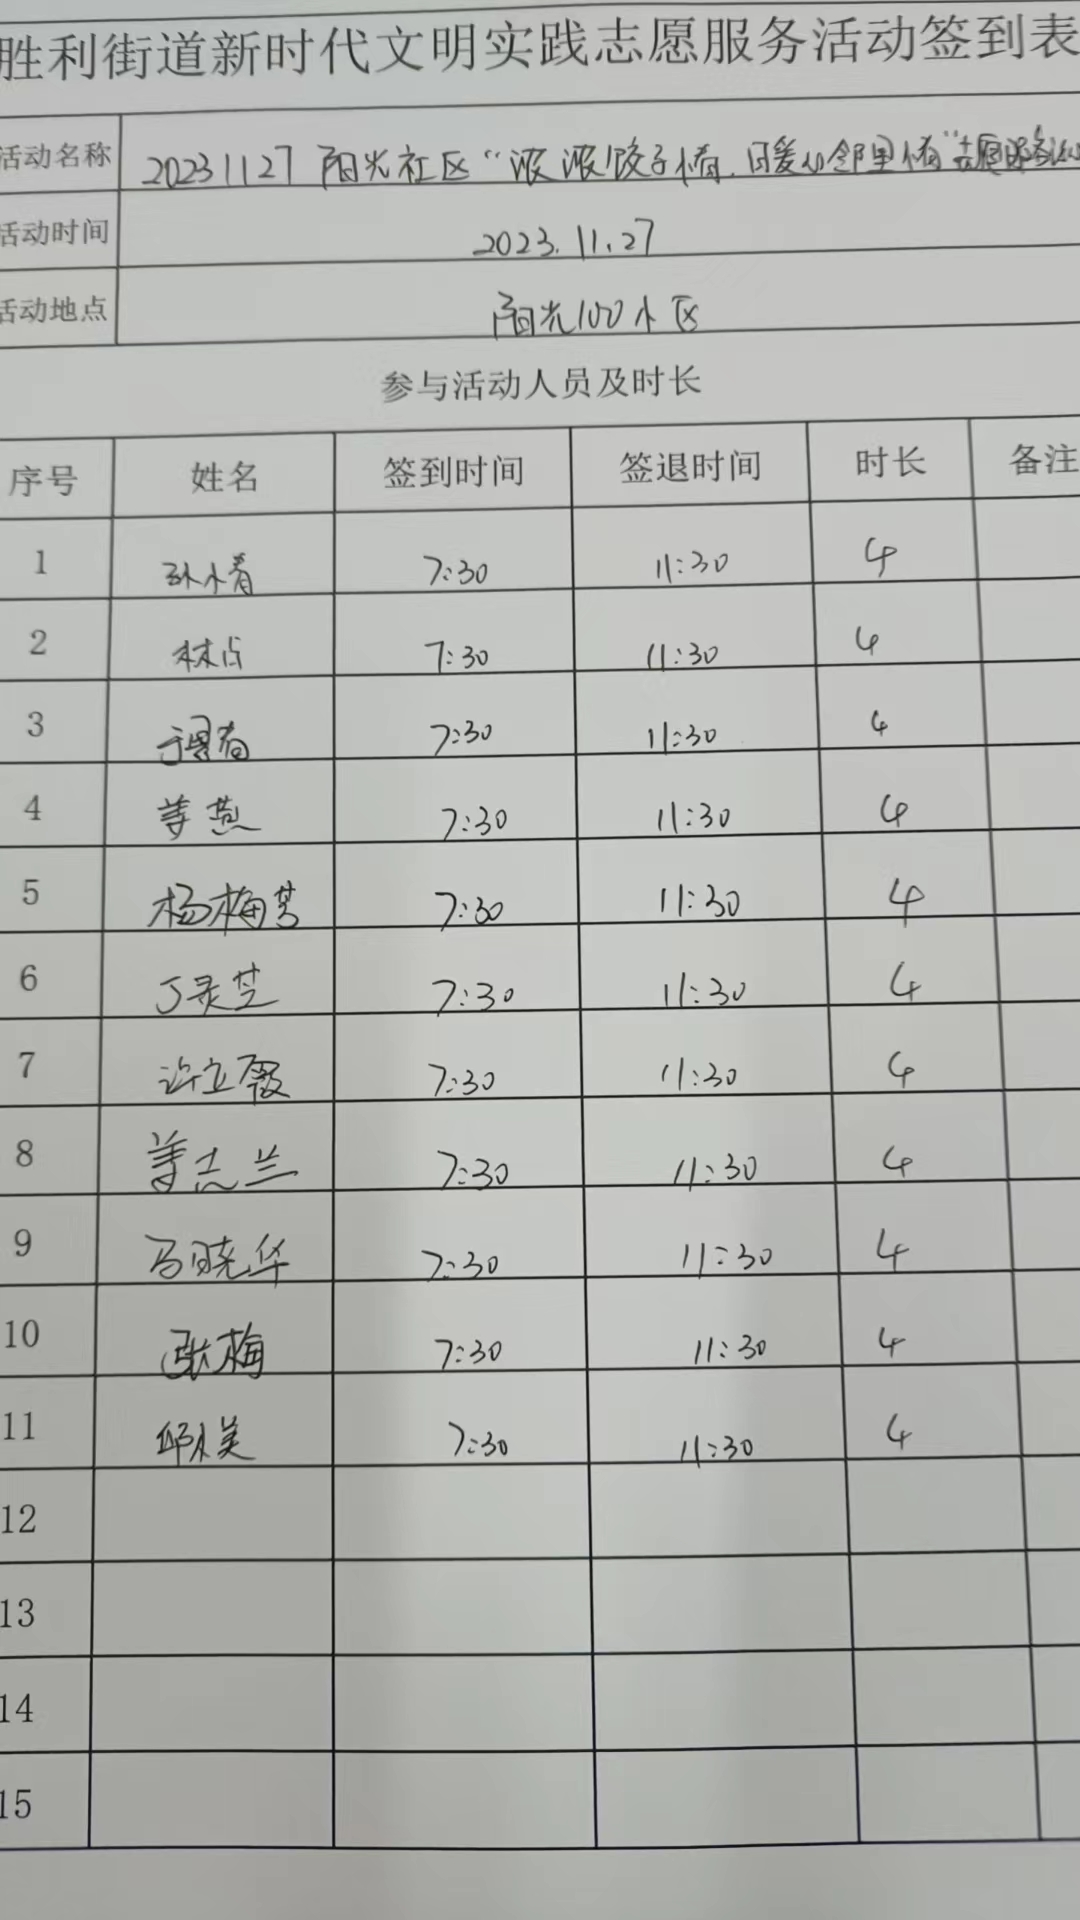 胜利街道新时代文明实践志愿服务活动签到表
活动名称 20231127 阳光社区“浓浓饺子情，暖心邻里情”志愿服务活动
活动时间 2023.11.27
活动地点 阳光100小区
参与活动人员及时长
序号 姓名 签到时间 签退时间 时长 备注
1 孙小青 7:30 11:30 4
2 林占 7:30 11:30 4
3 7:30 11:30 4
4 姜燕 7:30 11:30 4
5 杨梅芳 7:30 11:30 4
6 丁灵芝 7:30 11:30 4
7 许立霞 7:30 11:30 4
8 姜志兰 7:30 11:30 4
9 马晓华 7:30 11:30 4
10 张梅 7:30 11:30 4
11 邱永美 7:30 11:30 4
12
13
14
15